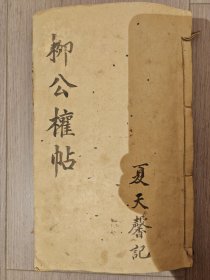 柳公權帖
夏天馨記